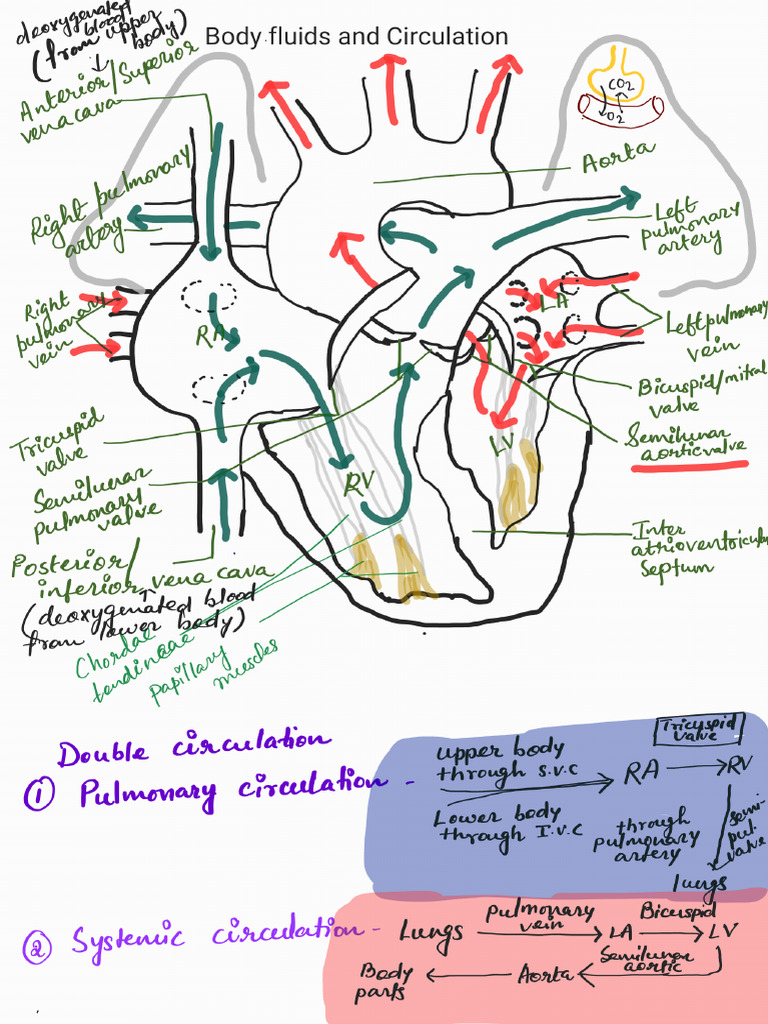 Body fluids and Circulation
deoxygenated
blood
(from upper
body)
Anterior/Superior
vena cava
Right pulmonary
artery
Right
pulmonary
vein
Tricuspid
valve
Semilunar
pulmonary
valve
Posterior/
inferior vena cava
(deoxygenated blood
from lower body)
Chordae
tendineae
papillary
muscles
CO2
O2
Aorta
Left
pulmonary
artery
Left pulmonary
vein
Bicuspid/mitral
valve
Semilunar
aortic valve
Inter
atrioventricular
Septum
RA
LA
LV
RV
Double circulation
① Pulmonary circulation -
upper body
through S.V.C
Lower body
through I.V.C
RA
Tricuspid
valve
RV
semi-
pul.
valve
through
pulmonary
artery
lungs
② Systemic circulation -
Lungs
pulmonary
vein
LA
Bicuspid
LV
Semilunar
aortic
Aorta
Body
parts